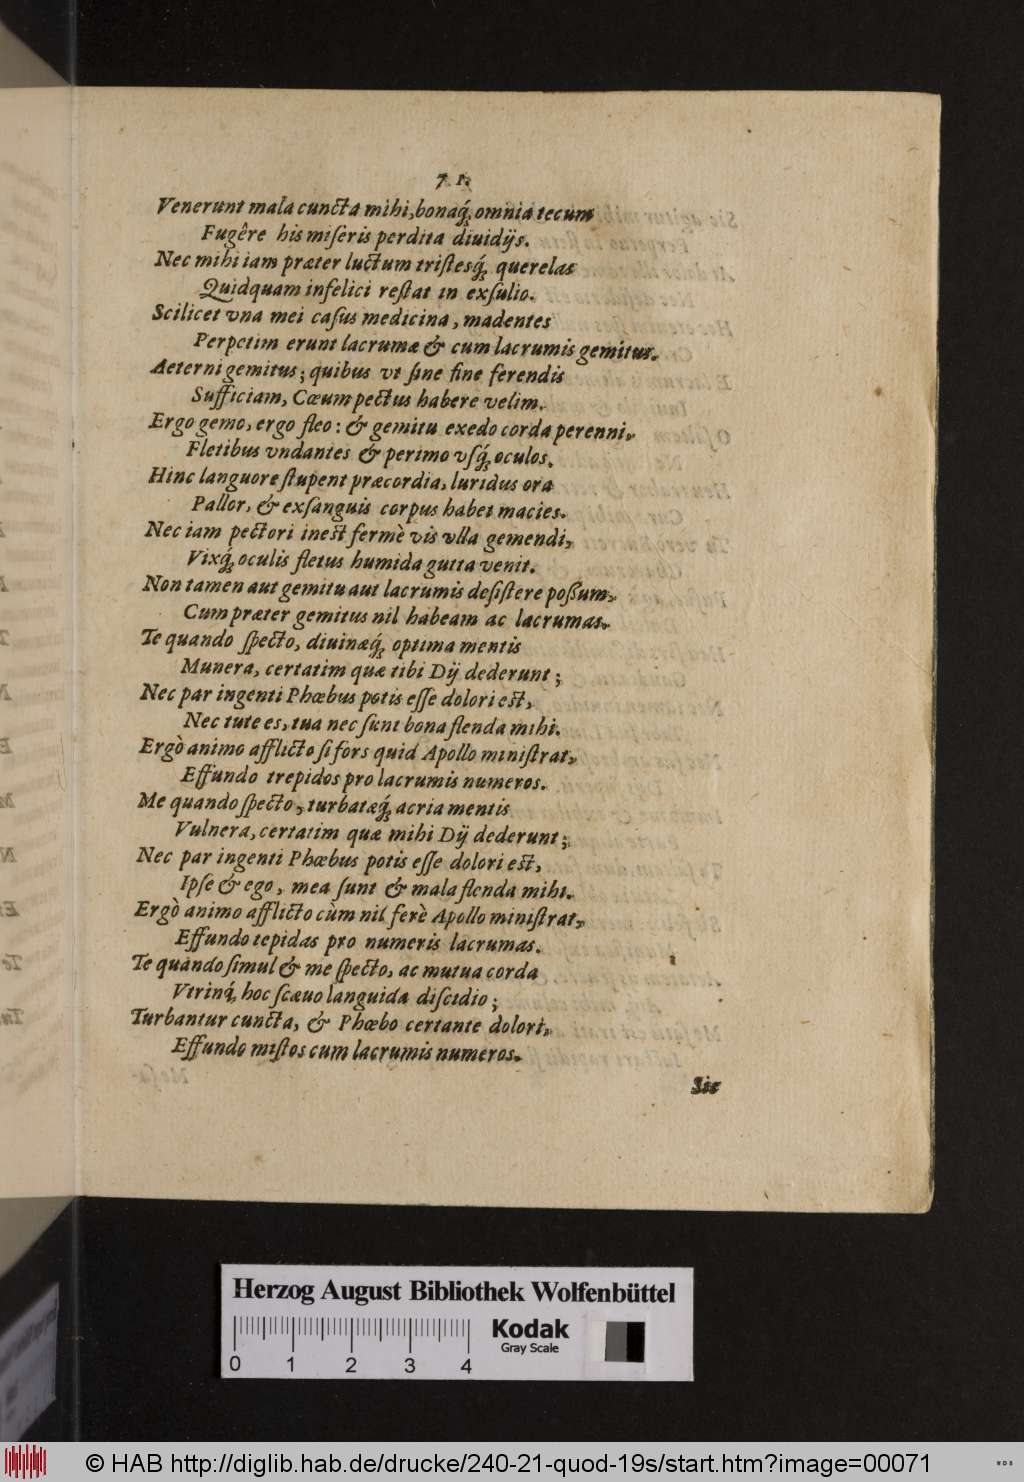 71.
Venerunt mala cuncta mihi, bonaq́; omnia tecum
Fugêre his miseris perdita diuidijs.
Nec mihi iam præter luctum tristesq́; querelas
Quidquam infelici restat in exsulio.
Scilicet vna mei casus medicina, madentes
Perpetim erunt lacrumæ & cum lacrumis gemitus.
Aeterni gemitus; quibus vt sine fine ferendis
Sufficiam, Cæum pectus habere velim.
Ergo gemo, ergo fleo: & gemitu exedo corda perenni,
Fletibus vndantes & perimo vsq́; oculos.
Hinc languore stupent præcordia, luridus ora
Pallor, & exsanguis corpus habet macies.
Nec iam pectori inest fermè vis vlla gemendi,
Vixq́; oculis fletus humida gutta venit.
Non tamen aut gemitu aut lacrumis desistere poßum,
Cum præter gemitus nil habeam ac lacrumas.
Te quando specto, diuinæq́; optima mentis
Munera, certatim quæ tibi Dij dederunt;
Nec par ingenti Phœbus potis esse dolori est,
Nec tute es, tua nec sunt bona flenda mihi.
Ergò animo afflicto si fors quid Apollo ministrat,
Effundo trepidos pro lacrumis numeros.
Me quando specto, turbatæq́; acria mentis
Vulnera, certatim quæ mihi Dij dederunt;
Nec par ingenti Phœbus potis esse dolori est,
Ipse & ego, mea sunt & mala flenda mihi.
Ergò animo afflicto cùm nil ferè Apollo ministrat,
Effundo tepidas pro numeris lacrumas.
Te quando simul & me specto, ac mutua corda
Vtrinq́; hoc scæuo languida discidio;
Turbantur cuncta, & Phœbo certante dolori,
Effundo mistos cum lacrumis numeros.
Sic
Herzog August Bibliothek Wolfenbüttel
Kodak
Gray Scale
0 1 2 3 4
© HAB http://diglib.hab.de/drucke/240-21-quod-19s/start.htm?image=00071